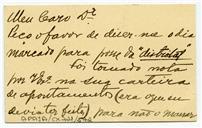 Meu Caro Dr.
Peço o favor de dizer-me o dia
marcado para posse do distrital
foi tomado nota
por V. Ex.ª na sua carteira
de apontamentos (era o que eu
devia ter feito) para não o massar